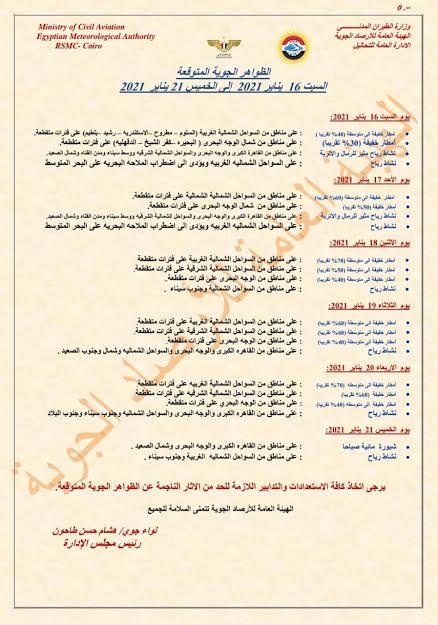 Ministry of Civil Aviation
Egyptian Meteorological Authority
RSMC- Cairo
وزارة الطيران المدنـــي
الهيئة العامة للأرصاد الجوية
الادارة العامة للتحاليل
الظواهر الجوية المتوقعة
السبت 16 يناير 2021 الى الخميس 21 يناير 2021
يوم السبت 16 يناير 2021:
أمطار خفيفة الى متوسطة (40% تقريبا) : على مناطق من السواحل الشمالية الغربية (السلوم – مطروح – الاسكندرية – رشيد – بلطيم) على فترات متقطعة.
أمطار خفيفة (30% تقريبا) : على مناطق من شمال الوجه البحرى ( البحيره – كفر الشيخ – الدقهليه) على فترات متقطعة.
نشاط رياح مثير للرمال والاتربة : على مناطق من القاهرة الكبرى والوجه البحرى والسواحل الشمالية الشرقيه ووسط سيناء ومدن القناه وشمال الصعيد.
نشاط رياح : على مناطق من السواحل الشماليه الغربيه ويؤدى الى اضطراب الملاحه البحريه على البحر المتوسط
يوم الأحد 17 يناير 2021:
أمطار خفيفة الى متوسطة (50% تقريبا) : على مناطق من السواحل الشمالية الشمالية على فترات متقطعة.
: على مناطق من شمال الوجه البحرى على فترات متقطعة.
نشاط رياح مثير للرمال والاتربة
نشاط رياح : على مناطق من السواحل الشماليه الغربيه ويؤدى الى اضطراب الملاحه البحريه على البحر المتوسط
يوم الاثنين 18 يناير 2021:
أمطار خفيفة الى متوسطة (70% تقريبا) : على مناطق من السواحل الشمالية الغربية على فترات متقطعة.
أمطار خفيفة الى متوسطة (50% تقريبا) : على مناطق من السواحل الشمالية الشرقية على فترات متقطعة.
أمطار خفيفة الى متوسطة (40% تقريبا) : على مناطق من القاهرة الكبرى والوجه البحرى على فترات متقطعة.
نشاط رياح : على مناطق من السواحل الشمالية وجنوب سيناء .
يوم الثلاثاء 19 يناير 2021:
أمطار خفيفة الى متوسطة (60% تقريبا) : على مناطق من السواحل الشمالية الغربية على فترات متقطعة.
أمطار خفيفة الى متوسطة (60% تقريبا) : على مناطق من السواحل الشمالية الشرقية على فترات متقطعة.
أمطار خفيفة الى متوسطة (40% تقريبا) : على مناطق من القاهرة الكبرى والوجه البحرى على فترات متقطعة.
نشاط رياح : على مناطق من القاهره الكبرى والوجه البحرى والسواحل الشماليه وشمال وجنوب الصعيد .
يوم الاربعاء 20 يناير 2021:
أمطار خفيفة الى متوسطة (70% تقريبا) : على مناطق من السواحل الشمالية الغربيه على فترات متقطعة.
أمطار خفيفة (60% تقريبا) : على مناطق من السواحل الشمالية الشرقيه على فترات متقطعة.
أمطار خفيفة الى متوسطة (40% تقريبا) : على مناطق من القاهرة الكبرى والوجه البحرى على فترات متقطعة.
نشاط رياح : على مناطق من القاهره الكبرى والوجه البحرى والسواحل الشماليه وجنوب سيناء وجنوب البلاد
يوم الخميس 21 يناير 2021:
شبورة مائية صباحا : على مناطق من القاهره الكبرى والوجه البحرى وشمال الصعيد .
نشاط رياح : على مناطق من السواحل الشمالية الغربية وجنوب سيناء .
يرجى اتخاذ كافة الاستعدادات والتدابير اللازمة للحد من الاثار الناجمة عن الظواهر الجوية المتوقعة.
الهيئة العامة للأرصاد الجوية تتمنى السلامة للجميع
لواء جوي/ هشام حسن طاحون
رئيس مجلس الإدارة
الهيئة العامة للأرصاد الجوية